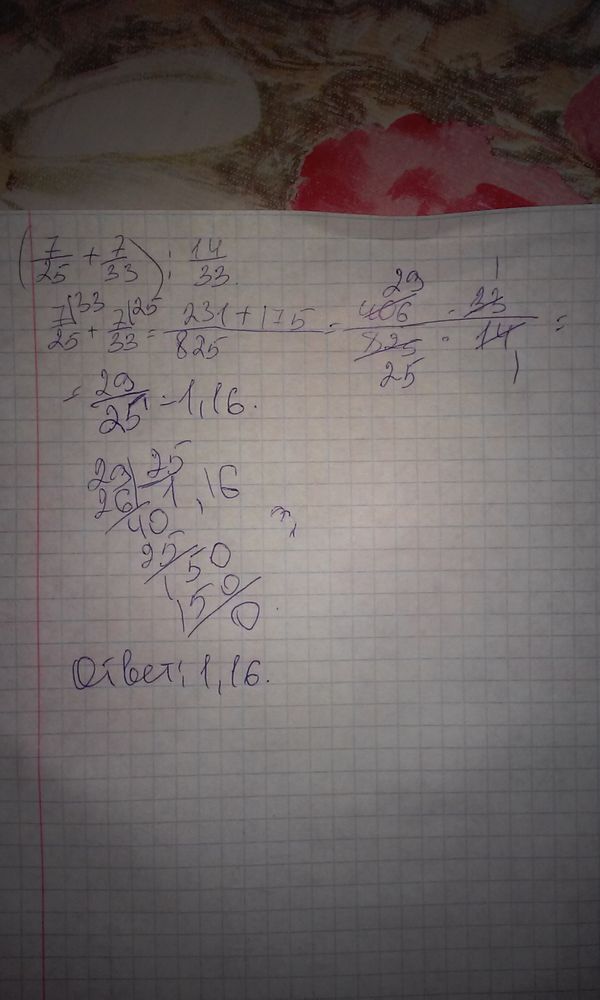 (7/25 + 7/33) : 14/33.
7|33/25 + 7|25/33 = 231+175/825 = 406 · 33/825 · 14 =
29 1
25 1
= 29/25 = 1,16.
29|25
1,16
40
25
150
150
0
Ответ: 1,16.